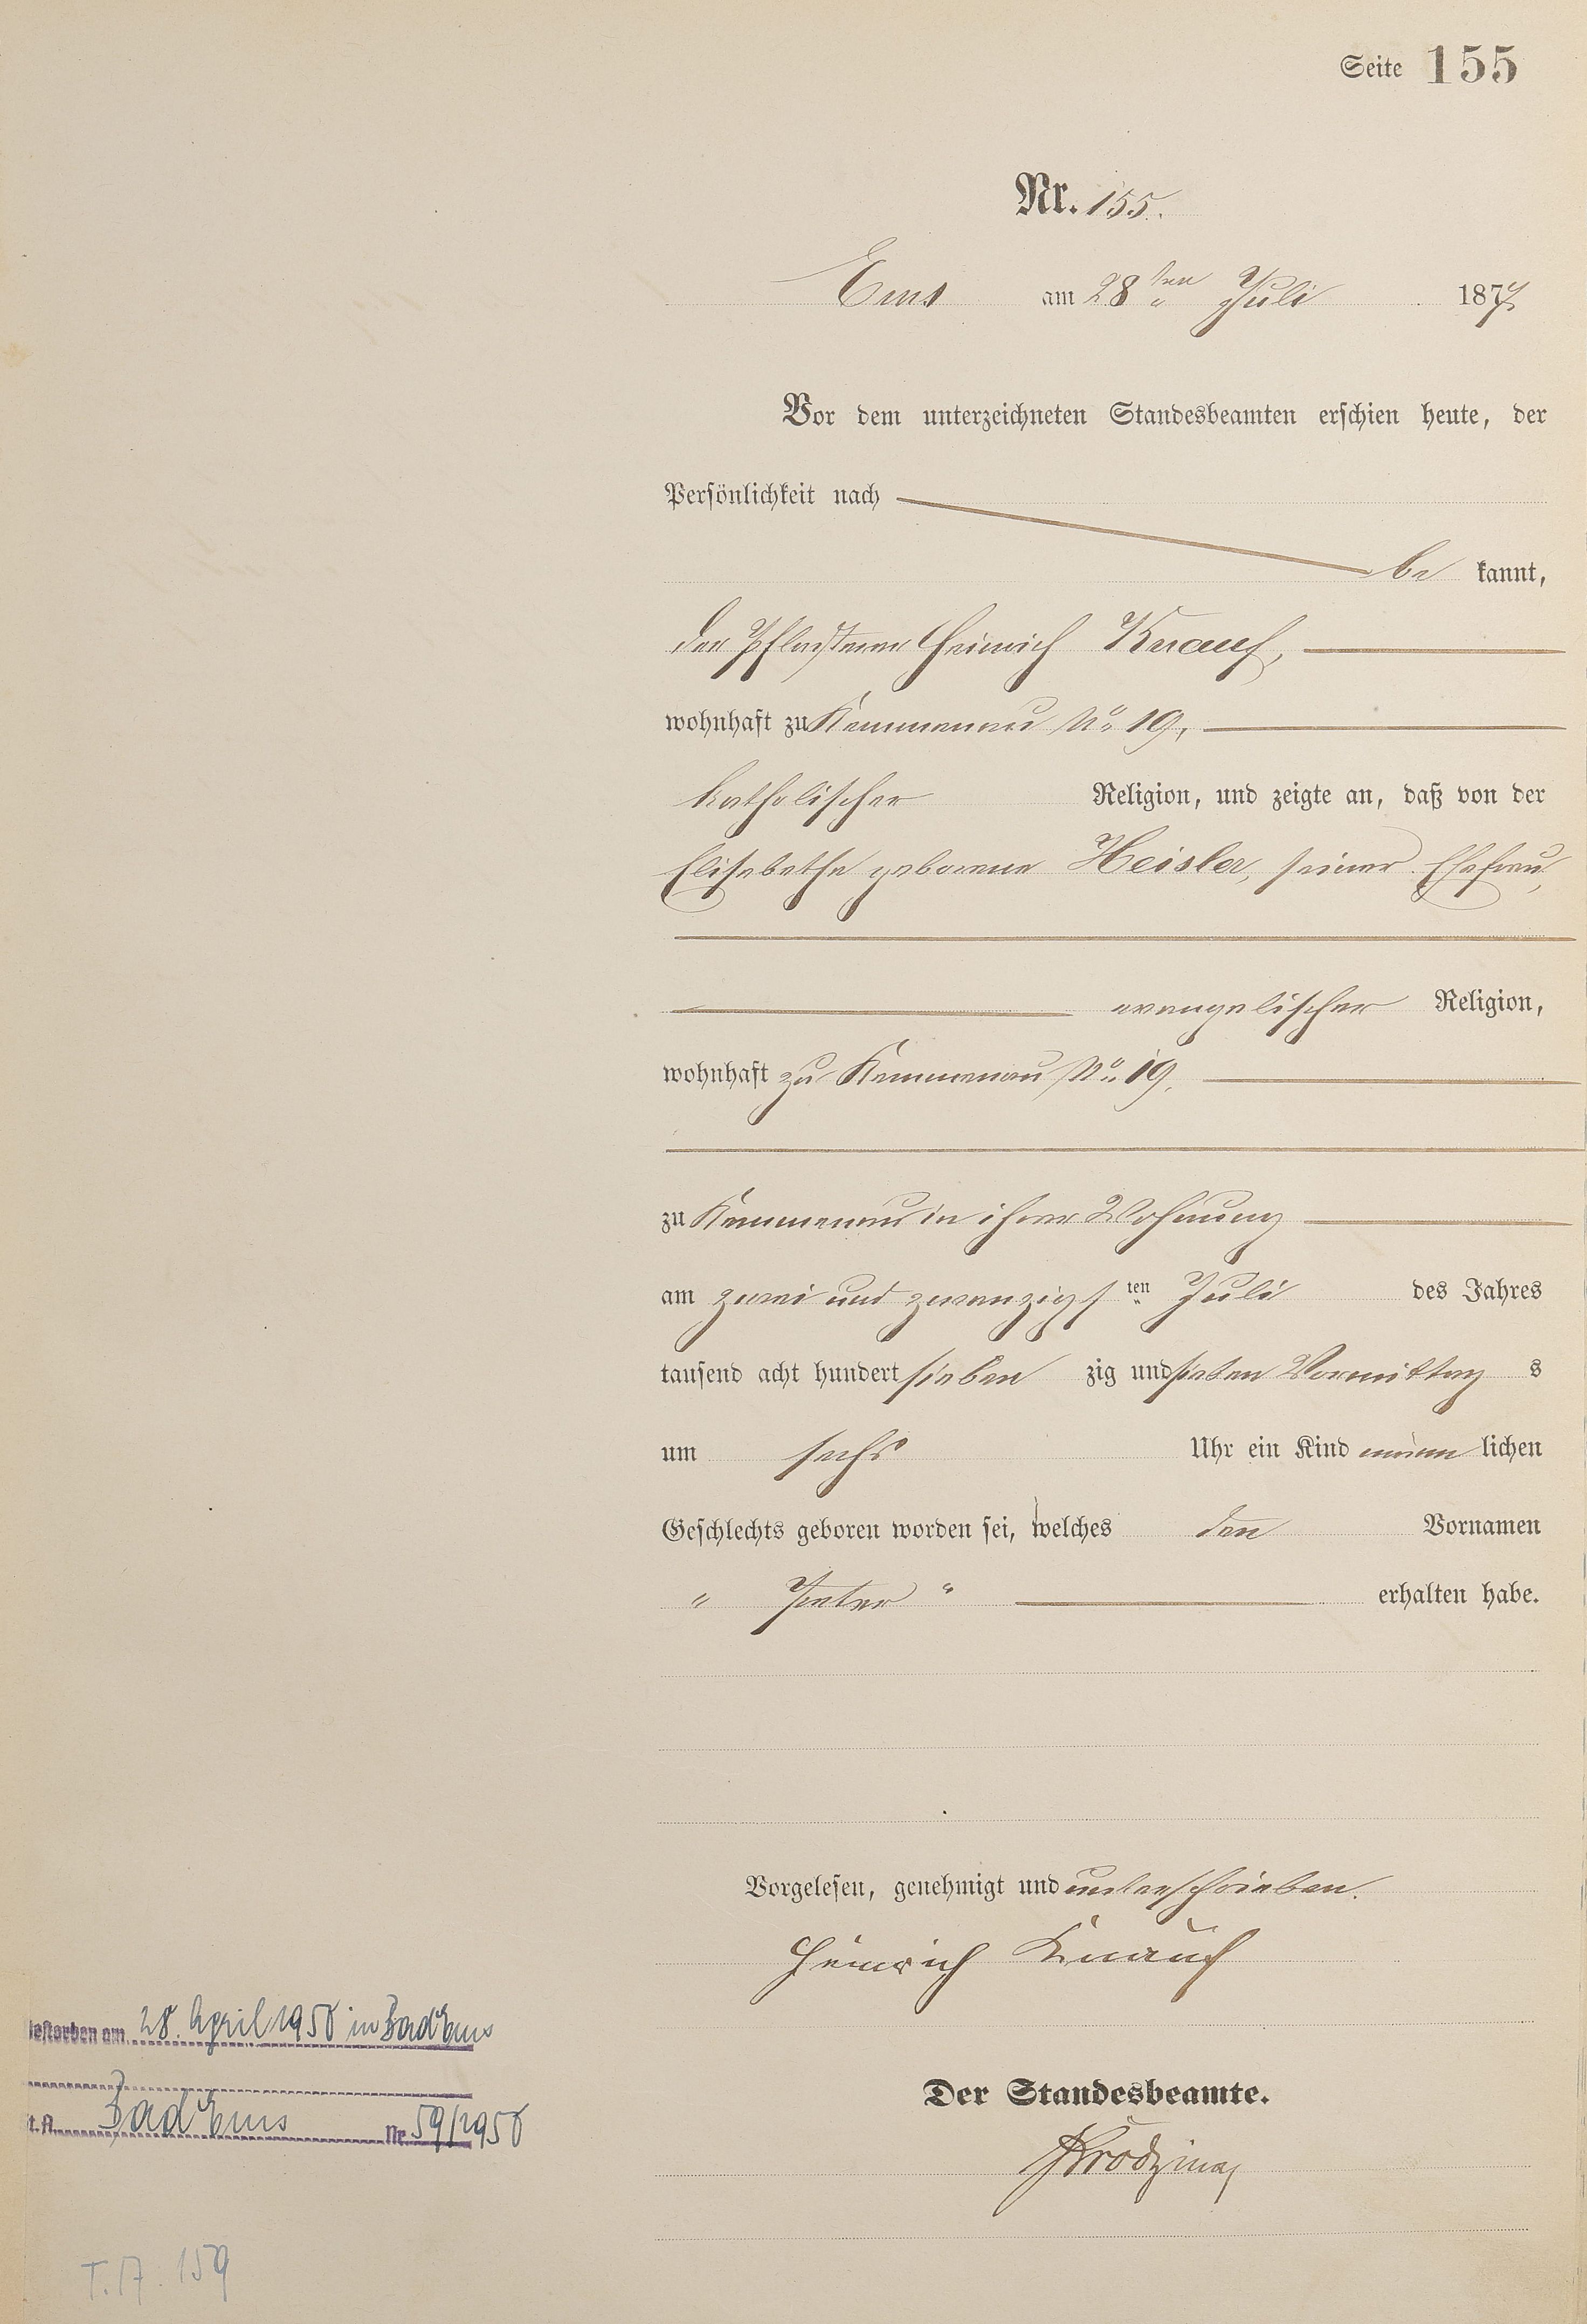 Seite 155
Nr. 155.
Ems am 28ten Juli 1877
Vor dem unterzeichneten Standesbeamten erschien heute, der
Persönlichkeit nach
be kannt,
der Pflasterer Heinrich Knauf,
wohnhaft zu Kemmenau No 19,
katholischer Religion, und zeigte an, daß von der
Elisabethe geborene Heisler, seiner Ehefrau,
evangelischer Religion,
wohnhaft zu Kemmenau No 19,
zu Kemmenau in ihrer Wohnung
am zwei und zwanzigsten Juli des Jahres
tausend acht hundert sieben zig und sieben Vormittag s
um sechs Uhr ein Kind männ lichen
Geschlechts geboren worden sei, welches den Vornamen
" Peter " erhalten habe.
Vorgelesen, genehmigt und unterschrieben.
Heinrich Knauf
Der Standesbeamte.
estorben am 28. April 1958 in Bad Ems
t. A. Bad Ems Nr. 59/1958
T. A. 159